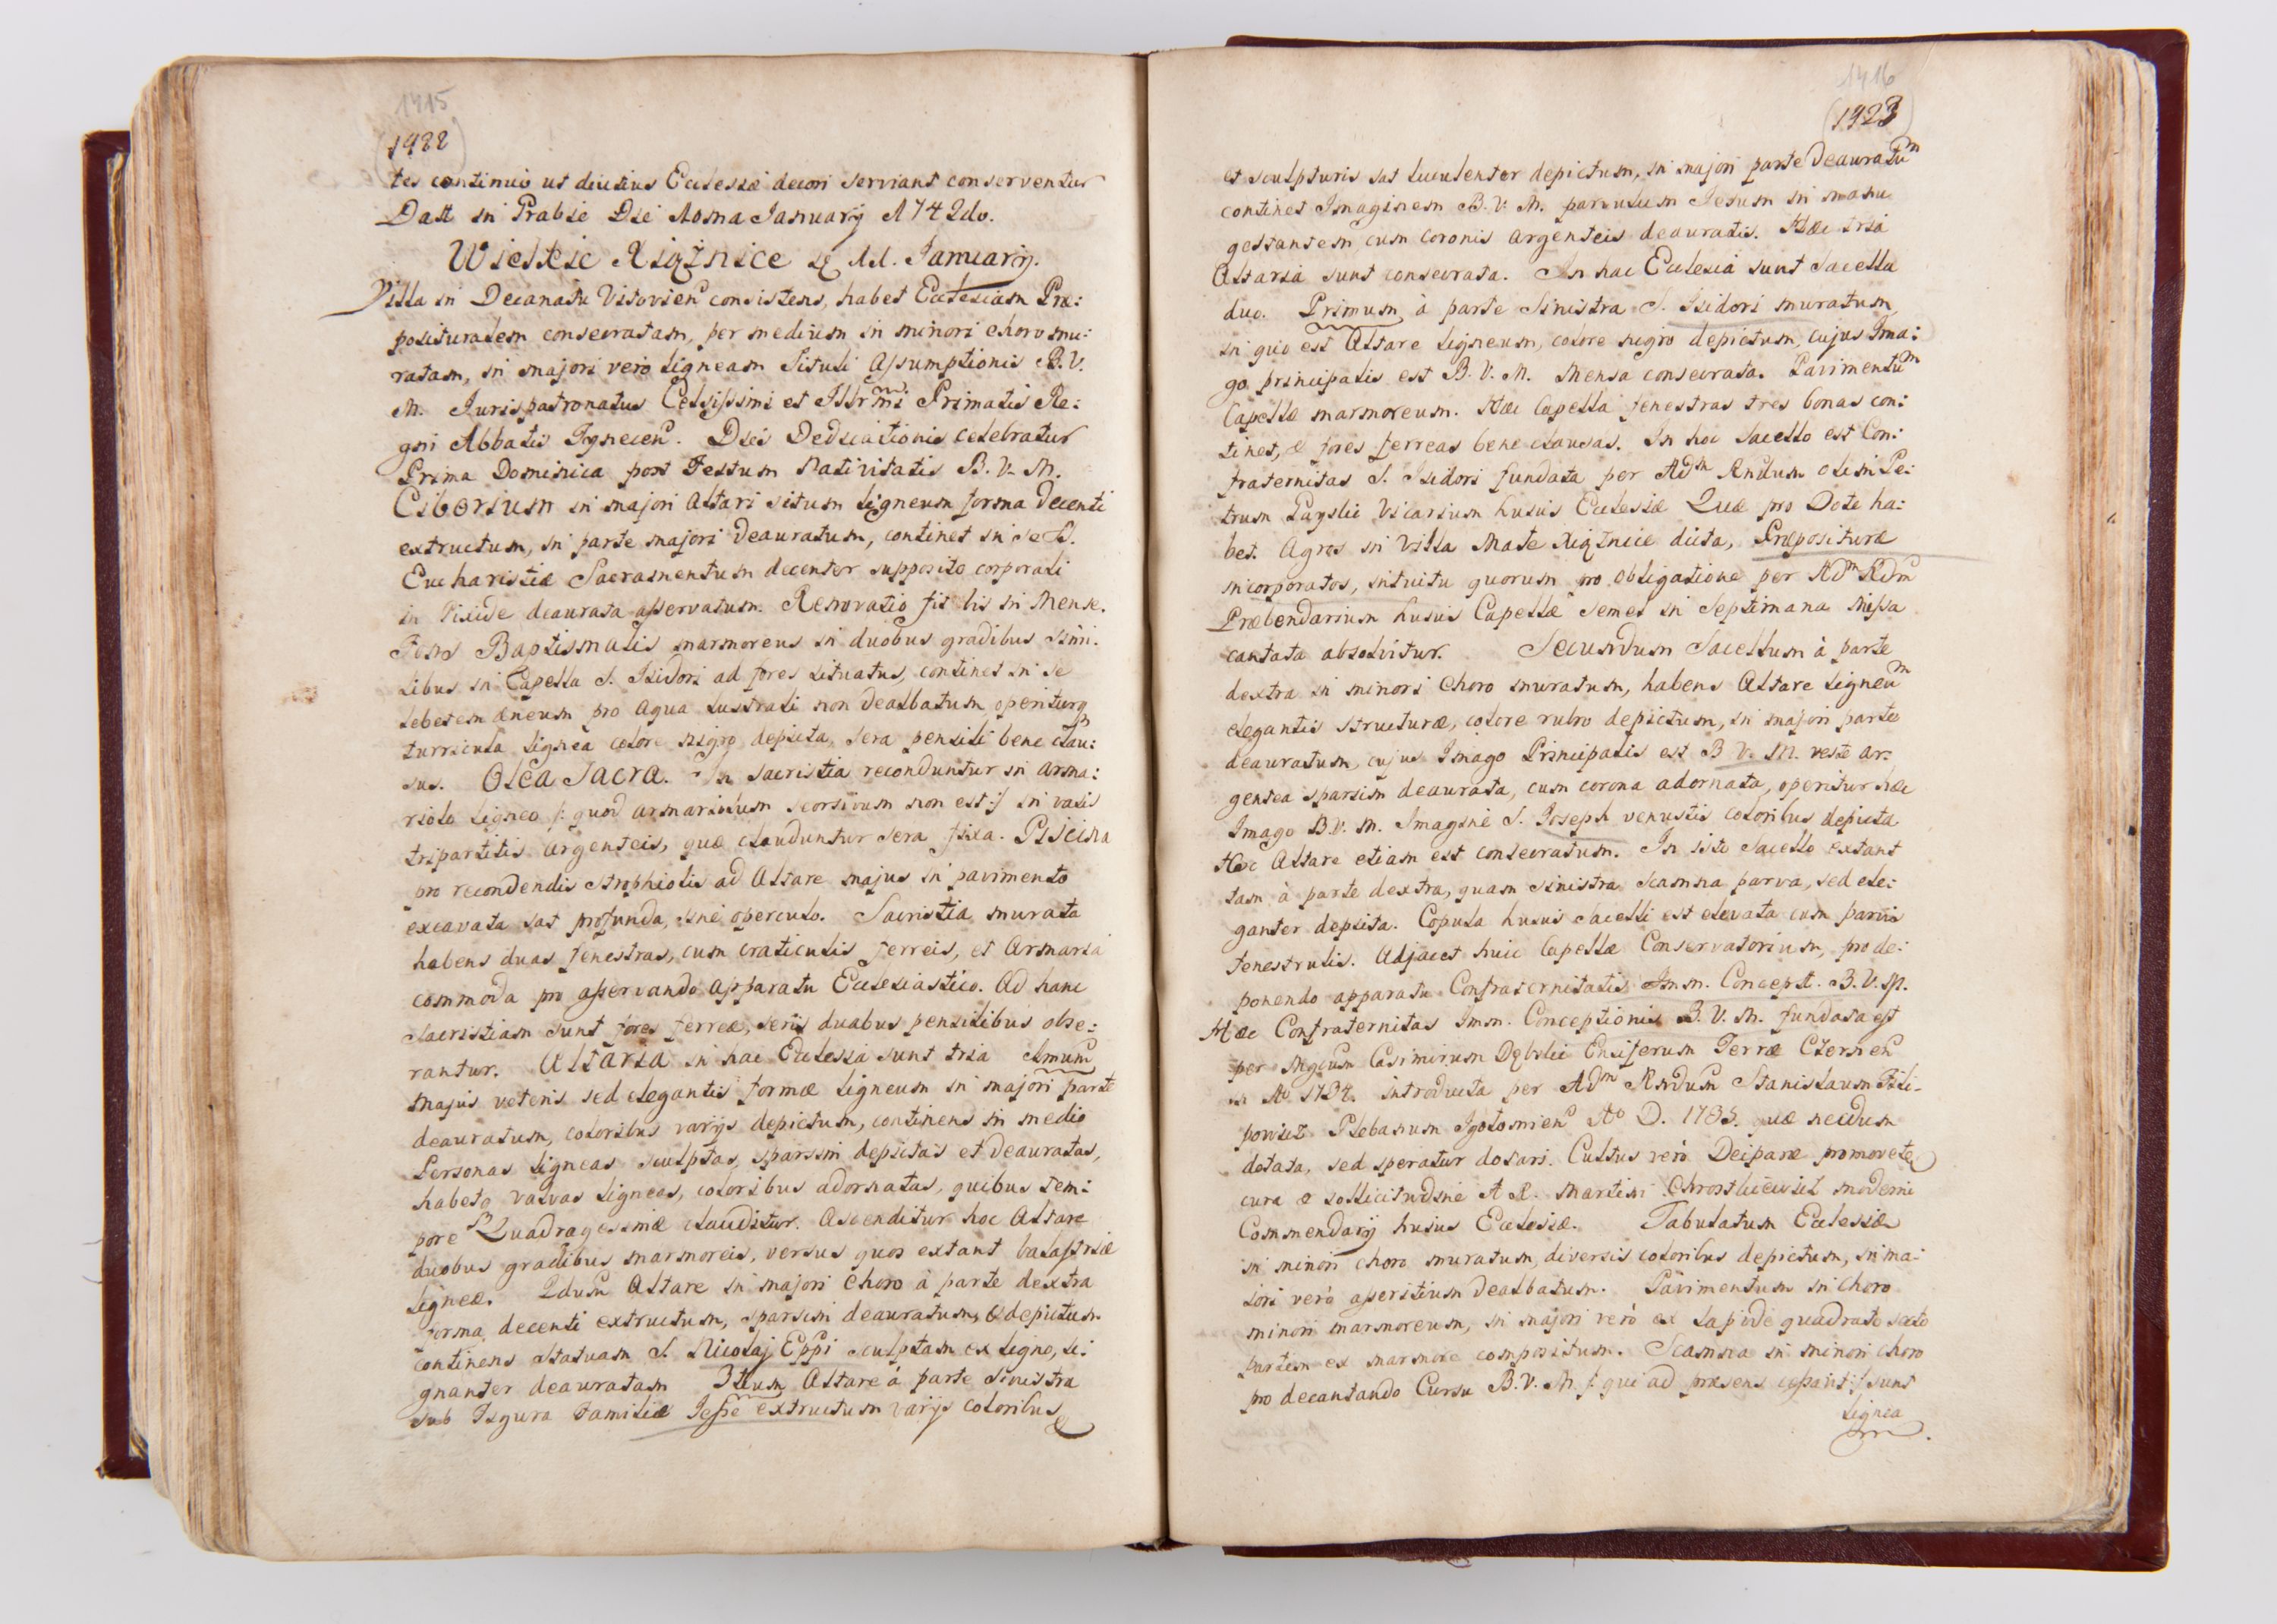 1415
(1922)
tes continuo ut diutius Ecclesiæ decori serviant conserventur
Datt in Prabie Die Nona January 1742do.
Wielkie Xiążnice 11. January.
Villa in Decanatu Vitovien consistens, habet Ecclesiam Præ:
posituralem consecratam, per medium in minori choro mu:
ratam, in majori vero ligneam Tituli Assumptionis B. V.
M. Jurispatronatus Celsissimi et Illrmi Primatis Re:
gni Abbatis Tynecen. Dies Dedicationis celebratur
Prima Dominica post Festum Nativitatis B. V. M.
Ciborium in majori Altari situm ligneum forma decenti
extructum, in parte majori deauratum, continet in se S.
Eucharistiæ Sacramentum decenter supposito corporali
in Pixide deaurata asservatum. Renovatio fit bis in Mense.
Fons Baptismalis marmoreus in duobus gradibus simi:
libus in Capella S. Isidori ad fores situatus, continet in se
lebetem æneum pro aqua lustrali non dealbatum operiturq
turricula lignea colore nigro depicta, sera pensili bene clau:
sus. Olea Sacra. In sacristia reconduntur in arma:
riolo ligneo /: quod armariolum seorsivum non est :/ in vasis
tripartitis argenteis, quæ clauduntur sera fixa. Piscina
pro recondendis strophiolis ad Altare majus in pavimento
excavata sat profunda, sine operculo. Sacristia murata
habens duas fenestras, cum craticulis ferreis, et Armaria
commoda pro asservando apparatu Ecclesiastico. Ad hanc
Sacristiam sunt fores ferreæ, seris duabus pensilibus obse:
rantur. Altaria in hac Ecclesia sunt tria 1mum
Majus veteris sed elegantis formæ ligneum in majori parte
deauratum, coloribus varijs depictum, continens in medio
Personas ligneas sculptas, sparsim depictas et deauratas,
habetq valvas ligneas, coloribus adornatas, quibus tem:
pore Quadragesimæ clauditur. Ascenditur hoc Altare
duobus gradibus marmoreis, versus quos extant balastriæ
ligneæ. 2dum Altare in majori Choro à parte dextra
forma decenti extructum, sparsim deauratum, & depictum
continens Statuam S. Nicolaj Eppi sculptam ex ligno, ele:
gnanter deauratam 3tium Altare à parte sinistra
sub Figura Familiæ Jesse extructum varijs coloribus
1416
(1923)
et sculpturis sat luculenter depictum, in majori parte deauratum
continet Imaginem B. V. M. parvulum Jesum in manu
gestantem cum coronis argenteis deauratis. Hæc tria
Altaria sunt consecrata. In hac Ecclesia sunt Sacella
duo. Primum à parte sinistra S. Isidori muratum
in quo est Altare ligneum, colore nigro depictum, cujus Ima:
go principalis est B. V. M. Mensa consecrata. Pavimentum
Capellæ marmoreum. Hæc Capella fenestras tres bonas con:
tinet, & fores ferreas bene clausas. In hoc Sacello est Con:
fraternitas S. Isidori fundata per Adm Rndum olim Pe:
trum Vicarium hujus Ecclesiæ Quæ pro Dote ha:
bet. Agros in Villa Małe Xiąznice dicta, Præposituræ
incorporatos, intuitu quorum pro obligatione per Adm Rdm
Præbendarium hujus Capellæ semel in Septimana Missa
cantata absolvitur. Secundum Sacellum à parte
dextra in minori Choro muratum, habens Altare ligneum
elegantis structuræ, colore rubro depictum, in majori parte
deauratum, cujus Imago Principalis est B V. M. veste ar:
gentea sparsim deaurata, cum corona adornata, operitur hæc
Imago B.V. M. Imagine S. Joseph venustis coloribus depicta
Hoc Altare etiam est consecratum. In isto Sacello extant
tam à parte dextra, quam sinistra scamna parva, sed ele:
ganter depicta. Copula hujus Sacelli est elevata cum parvis
fenestrulis. Adjacet huic Capellæ Conservatorium, pro de:
ponendo apparatu Confraternitatis Imm. Concept. B. V. M.
Hæc Confraternitas Imm. Conceptionis B. V. M. fundata est
per Mgcum Casimirum Dębski Ensiferum Terræ Czernen
in Ao 1734. introducta per Adm Rndum Stanislaum Fili-
powicz Plebanum Igolomien Ao D. 1735. quæ necdum
dotata, sed speratur dotari. Cultus verò Deiparæ promovetur
cura & sollicitudine A R. Martini moderni
Commendarij hujus Ecclesiæ. Tabulatum Ecclesiæ
in minori choro muratum, diversis coloribus depictum, in ma:
jori verò asseritium dealbatum. Pavimentum in Choro
minori marmoreum, in majori verò ex lapide quadrato secto
partim ex marmore compositum. Scamna in minori choro
pro decantando Cursu B. V. M. /: qui ad præsens cessavit :/ sunt
lignea